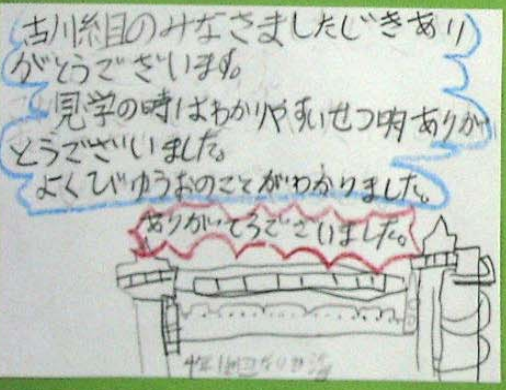 古川組のみなさましたじきあり
がとうございます。
見学の時はわかりやすいせつ明ありが
とうございました。
よくびゅうおのことがわかりました。
ありがとうございました。